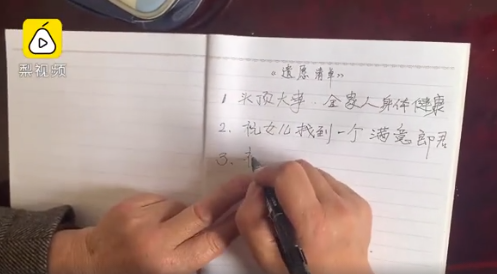 梨视频
《遗愿清单》
1 头顶大事.全家人身体健康
2. 祝女儿找到一个满意郎君
3.